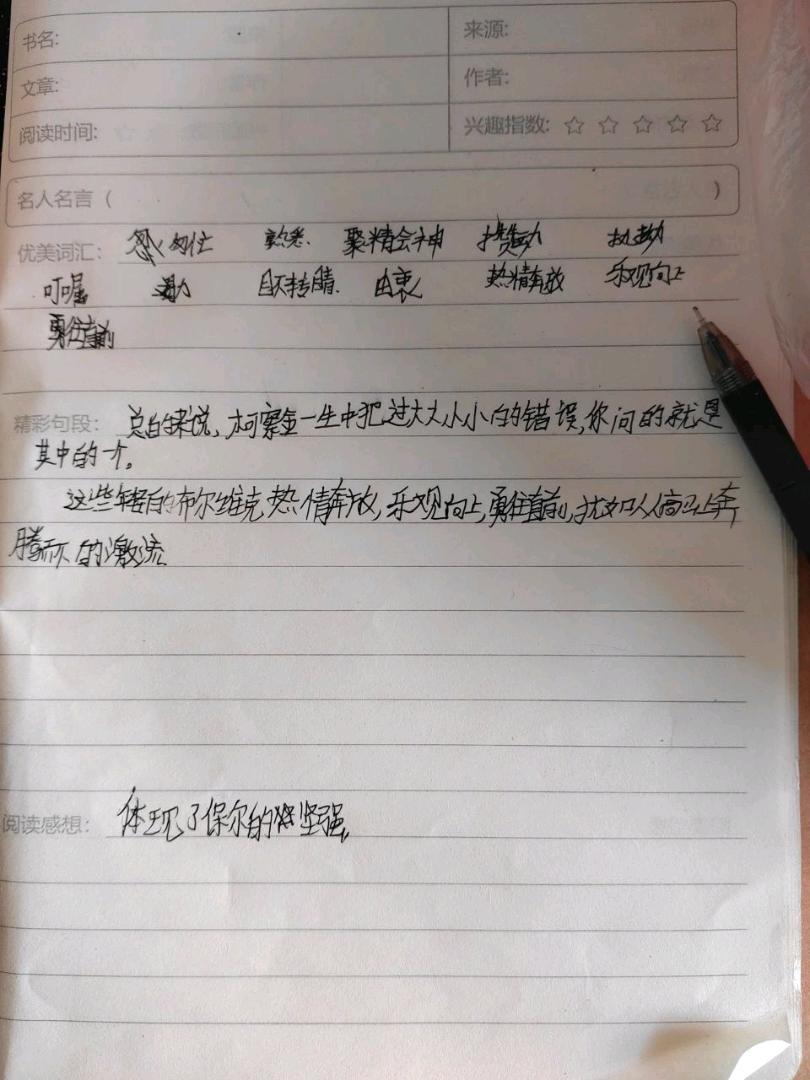 书名: 来源:
文章: 作者:
阅读时间: 兴趣指数: ☆ ☆ ☆ ☆ ☆
名人名言 ( )
优美词汇: 匆忙 熟悉 聚精会神
叮嘱 目不转睛 由衷 热情奔放 乐观向上
勇往直前
精彩句段: 总的来说,柯察金一生中犯过大大小小的错误,你问的就是
其中的一个。
这些年轻的布尔维克热情奔放,乐观向上,勇往直前,犹如人高马上奔
腾不 的激流
阅读感想: 体现了保尔的坚强